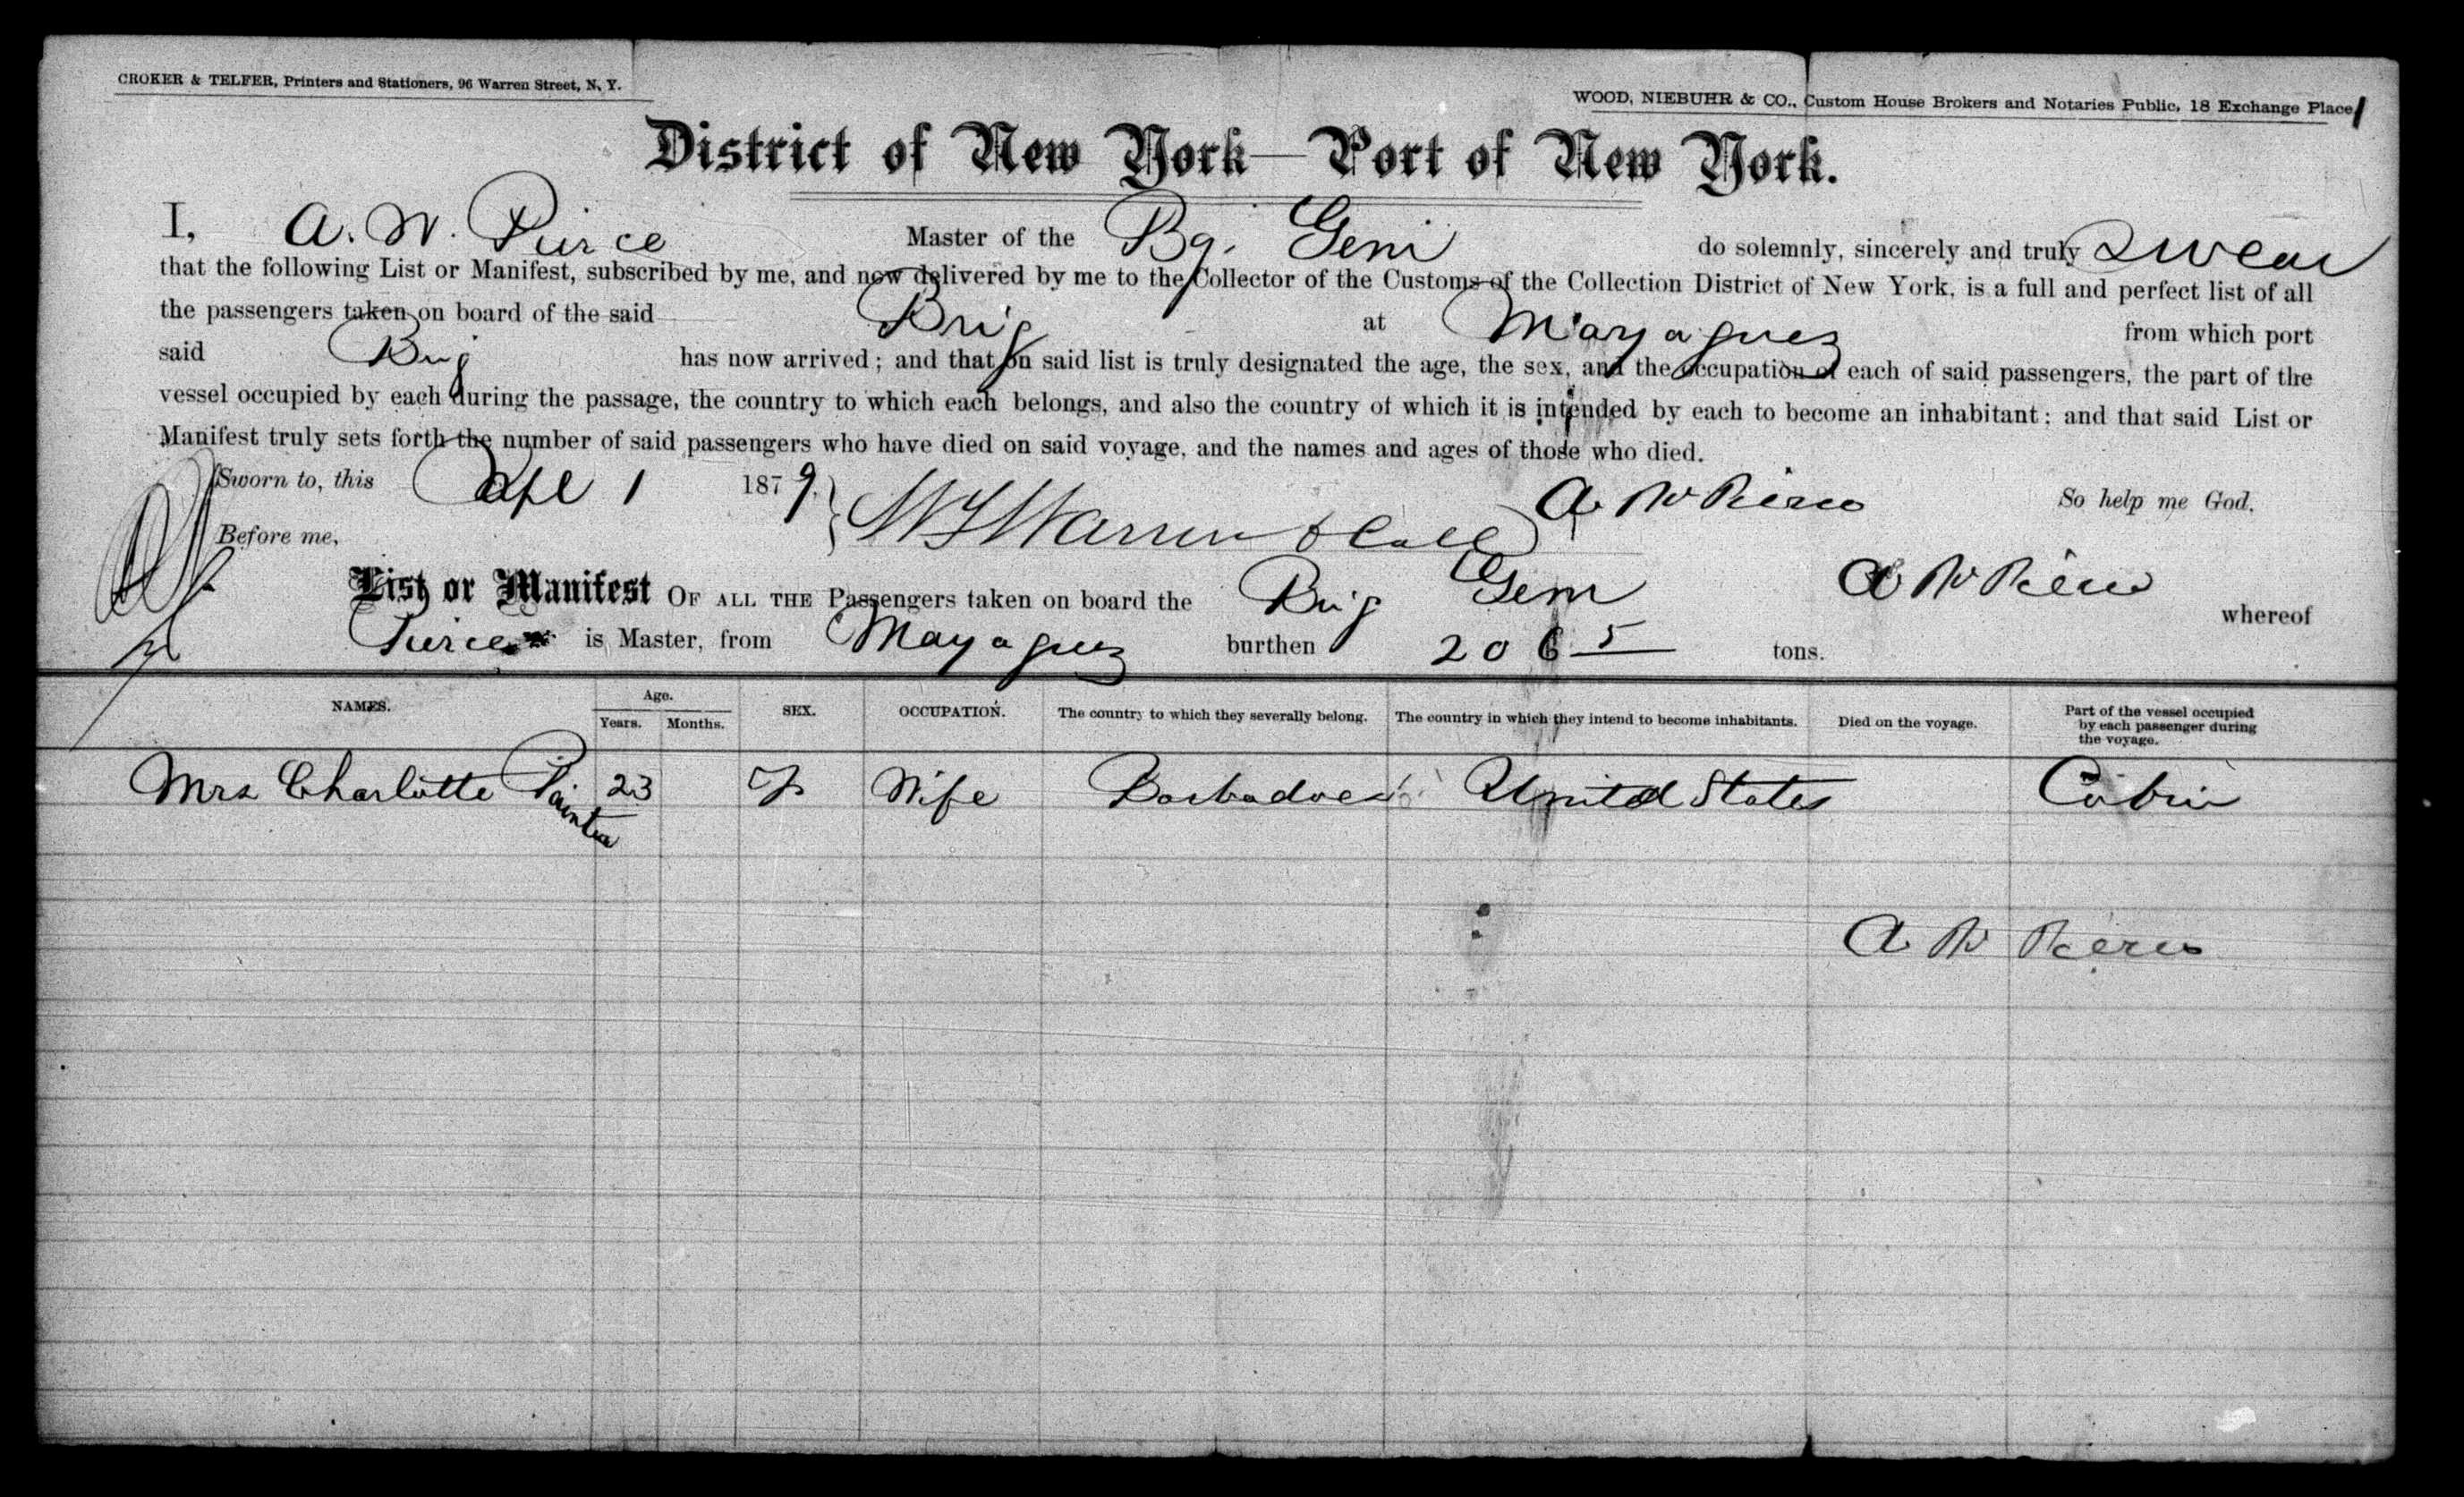 CROKER & TELFER, Printers and Stationers, 96 Warren Street, N. Y.
WOOD, NIEBUHR & CO., Custom House Brokers and Notaries Public, 18 Exchange Place
District of New York—Port of New York.
I, A. W. Pierce Master of the Bg. Gem do solemnly, sincerely and truly swear
that the following List or Manifest, subscribed by me, and now delivered by me to the Collector of the Customs of the Collection District of New York, is a full and perfect list of all
the passengers taken on board of the said Brig at Mayaguez from which port
said Brig has now arrived; and that on said list is truly designated the age, the sex, and the occupation of each of said passengers, the part of the
vessel occupied by each during the passage, the country to which each belongs, and also the country of which it is intended by each to become an inhabitant; and that said List or
Manifest truly sets forth the number of said passengers who have died on said voyage, and the names and ages of those who died.
Sworn to, this Apl 1 1879. A W Pierce So help me God.
Before me,
List or Manifest OF ALL THE Passengers taken on board the Brig Gem A W Pierce whereof
Pierce is Master, from Mayaguez burthen 206 5 tons.
NAMES. Age. Years. Months. SEX. OCCUPATION. The country to which they severally belong. The country in which they intend to become inhabitants. Died on the voyage. Part of the vessel occupied by each passenger during the voyage.
Mrs Charlotte Painter 23 F Wife Barbadoes United States Cabin
A W Pierce